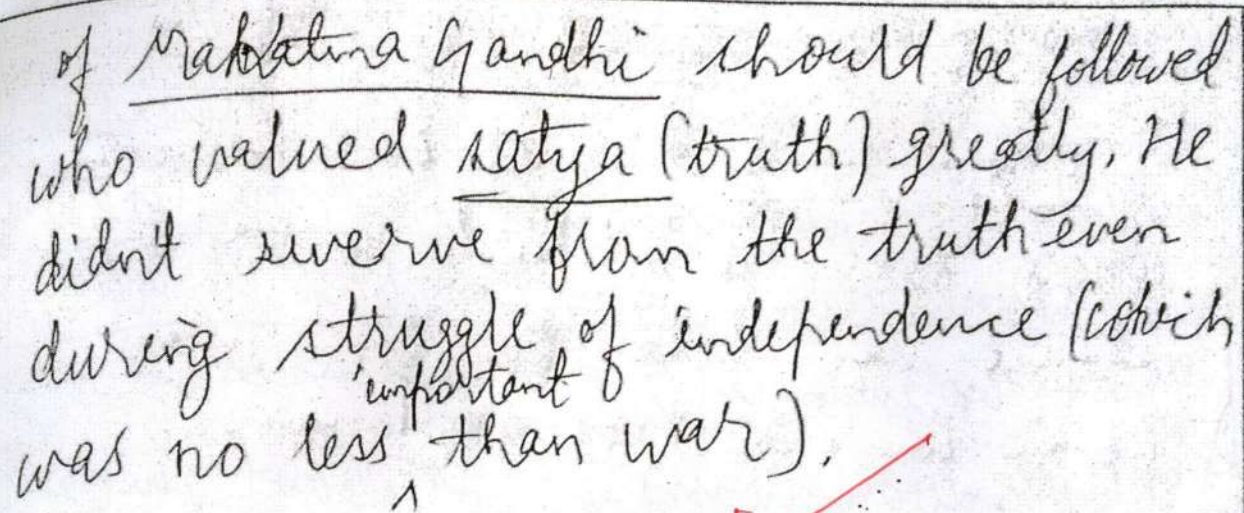 of Mahatma Gandhi should be followed
who valued satya (truth) greatly. He
didn't swerve from the truth even
during struggle of independence (which
was no less important than war).